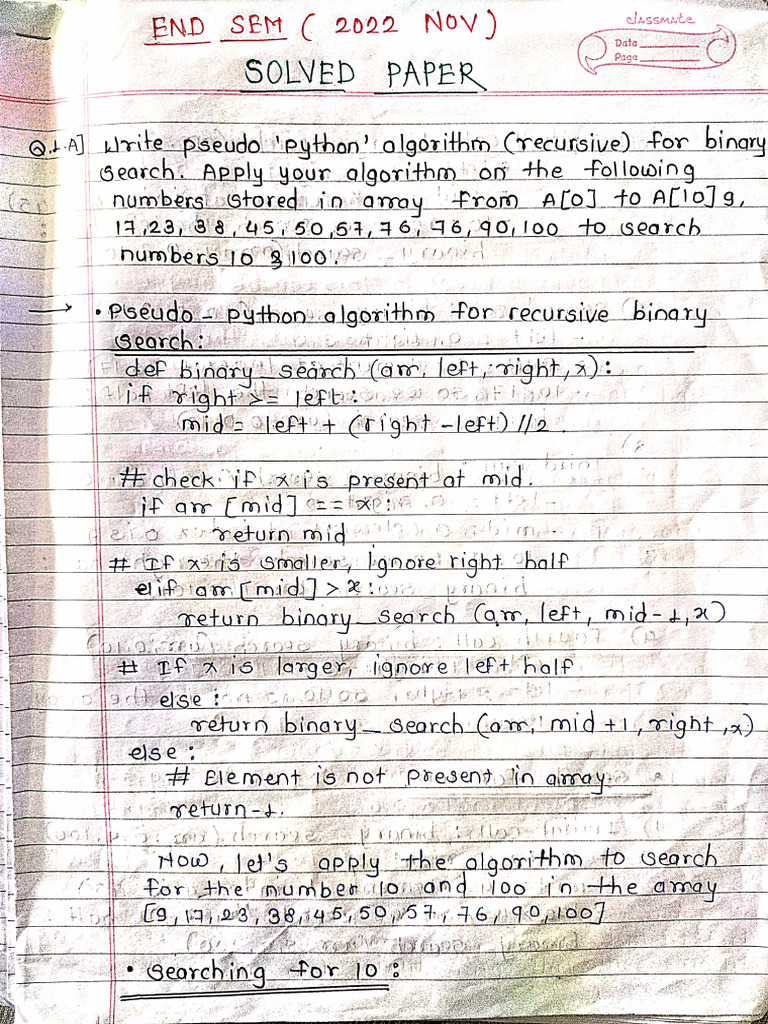 END SEM ( 2022 NOV )
classmate
Date
Page
SOLVED PAPER
Q.1.A] Write pseudo 'python' algorithm (recursive) for binary
search. Apply your algorithm on the following
numbers stored in array from A[0] to A[10] 9,
17,23, 38, 45, 50, 57, 76, 76, 90, 100 to search
numbers 10 & 100.
→ • Pseudo - python algorithm for recursive binary
search:
def binary search (arr, left, right, x):
if right >= left:
mid = left + (right - left) // 2.
# check if x is present at mid.
if arr [mid] == x:
return mid
# If x is smaller, ignore right half
elif arr [mid] > x:
return binary_search (arr, left, mid-1, x)
# If x is larger, ignore left half
else:
return binary_search (arr, mid +1, right, x)
else:
# Element is not present in array.
return-1.
Now, let's apply the algorithm to search
for the number 10 and 100 in the array
[9, 17, 23, 38, 45, 50, 57, 76, 90, 100]
• Searching for 10: